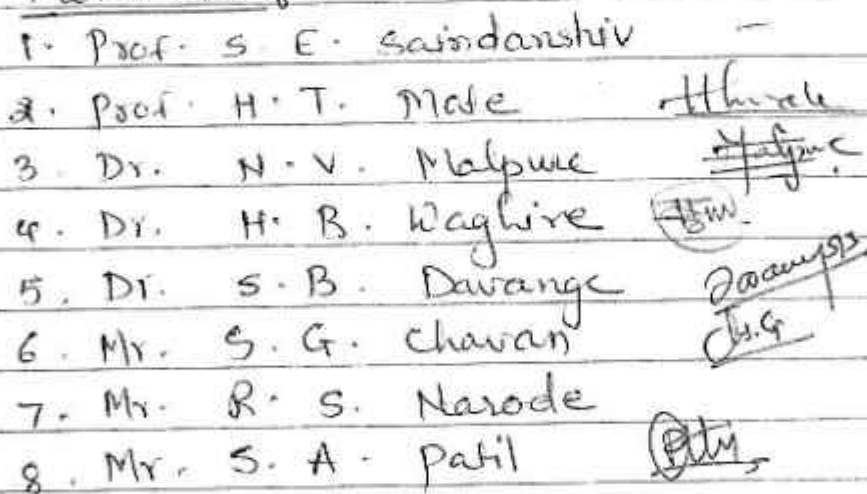 1. Prof. S. E. Saindanshiv -
2. Prof. H. T. Mate
3. Dr. N. V. Malpure
4. Dr. H. B. Waghire
5. Dr. S. B. Davange
6. Mr. S. G. Chavan
7. Mr. R. S. Narode
8. Mr. S. A. Patil